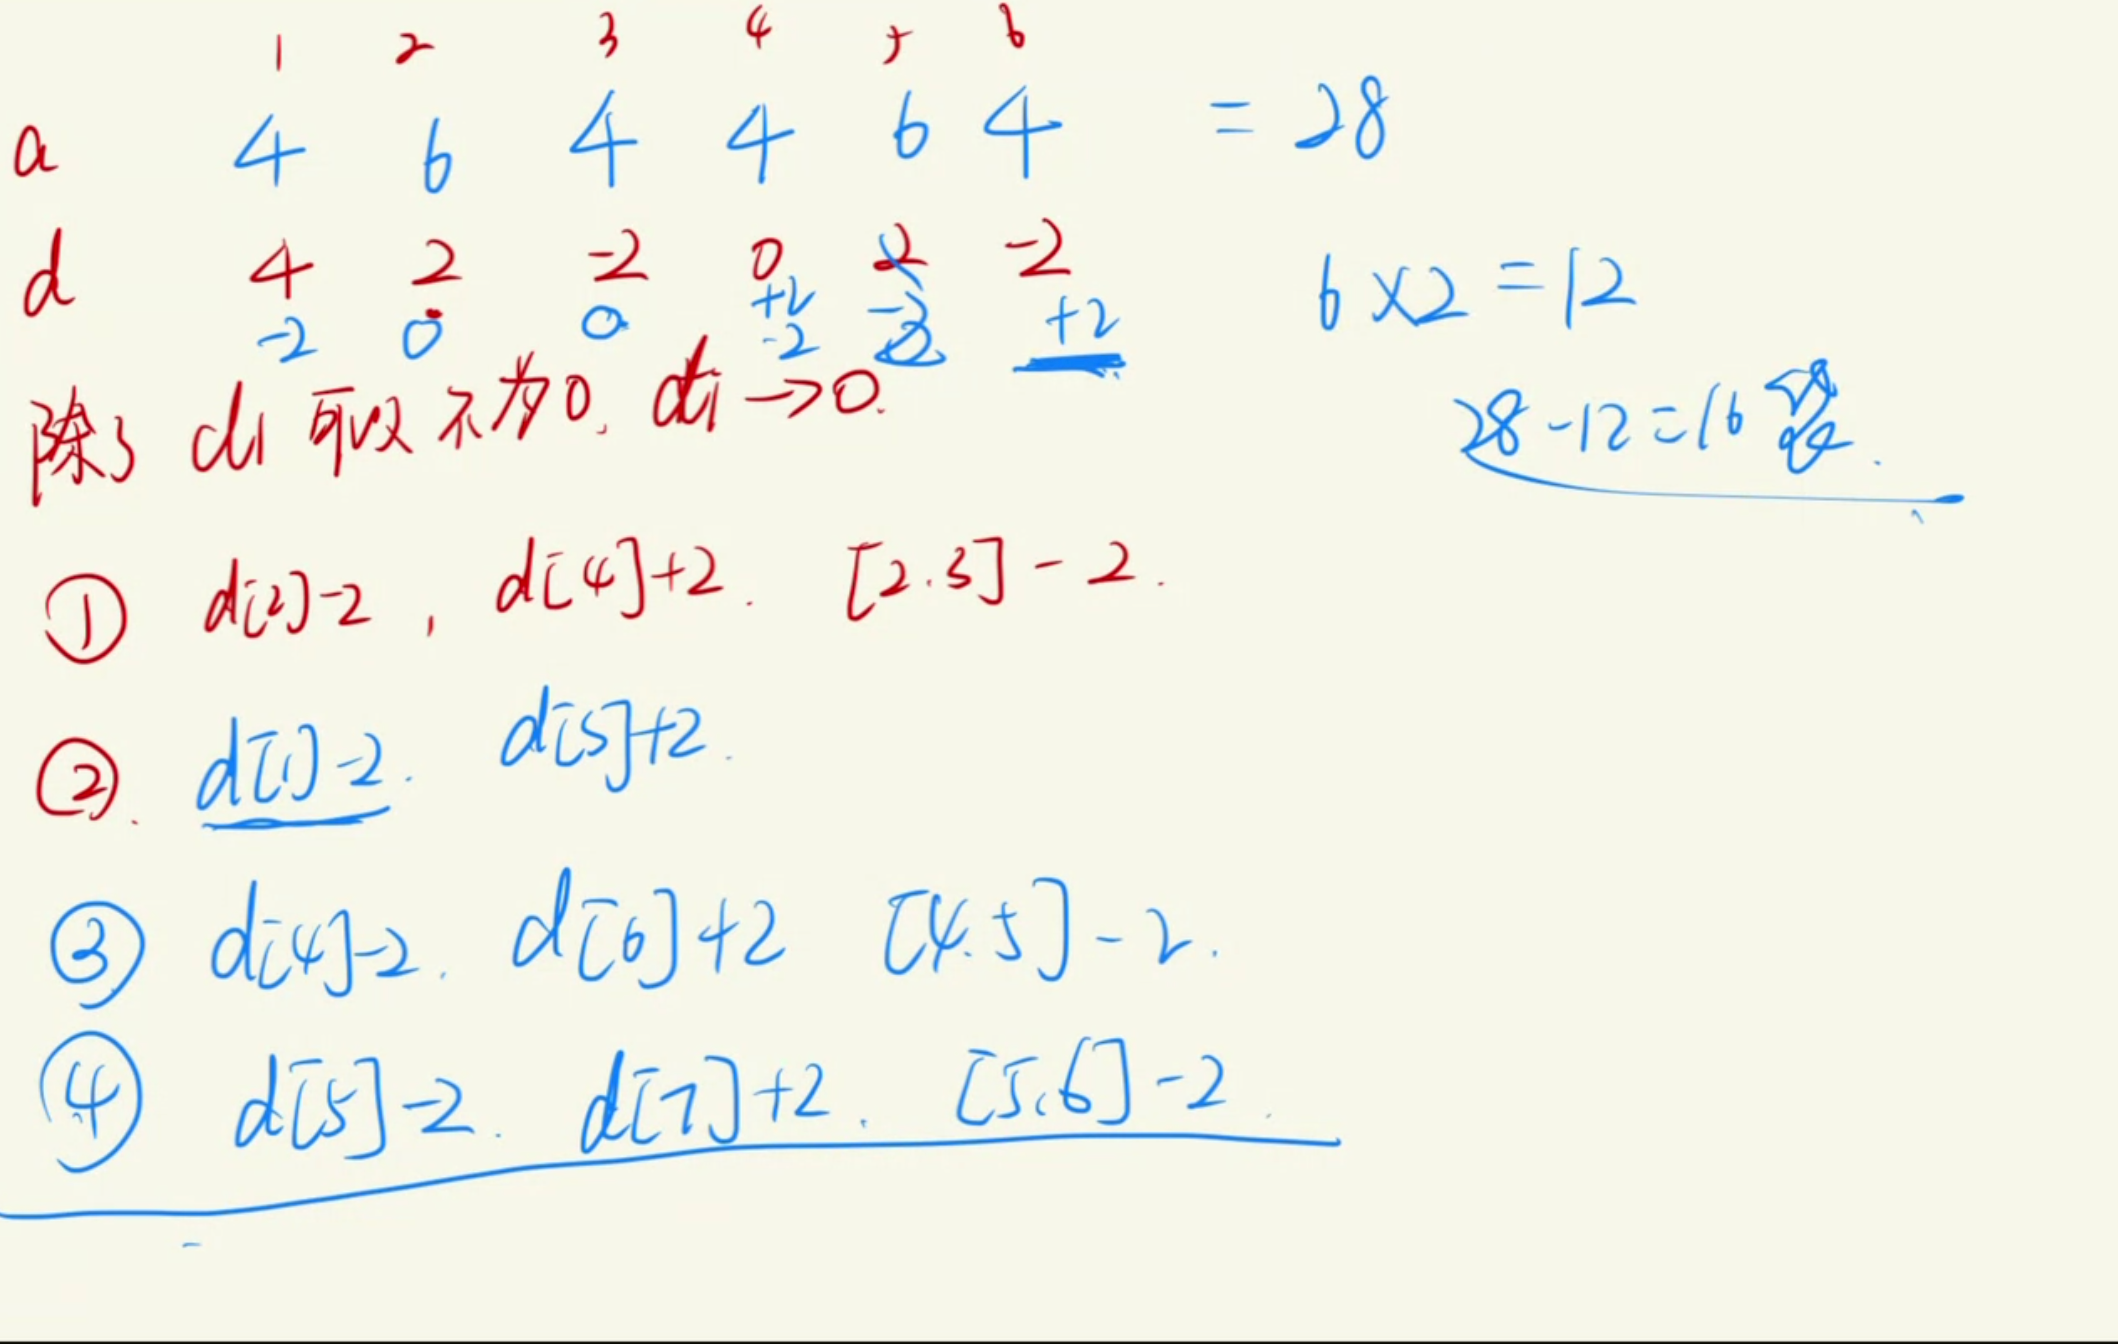 1 2 3 4 5 6
a 4 6 4 4 6 4 = 28
d 4 2 -2 0 2 -2
6 × 2 = 12
-2 0 0 +2 -2 +2
-2
除了 d1 可以不为0, di → 0.
28 - 12 = 16
① d[2]-2, d[4]+2. [2.3]-2.
②. d[1]-2. d[5]+2.
③ d[4]-2. d[6]+2 [4.5]-2.
④ d[5]-2. d[7]+2. [5.6]-2.